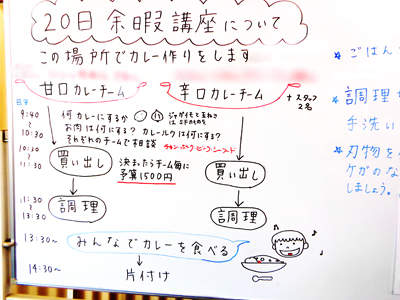 20日 余暇講座について
この場所でカレー作りをします
甘口カレーチーム
辛口カレーチーム
+スタッフ
2名
9:40
〜
10:30
何カレーにするか
ジャガイモと玉ねぎ
は
お肉は何にする? カレールクは何にする?
それぞれのチームで相談
チキン・ポーク・ビーフ・シーフード
10:30
〜
11:30
買い出し
決まったらチーム毎に
予算1500円
買い出し
11:30
〜
13:30
調理
調理
13:30〜
みんなでカレーを食べる
14:30〜
片付け
★ごはん
調理
手洗い
★刃物を
ケガのな
しましょう。